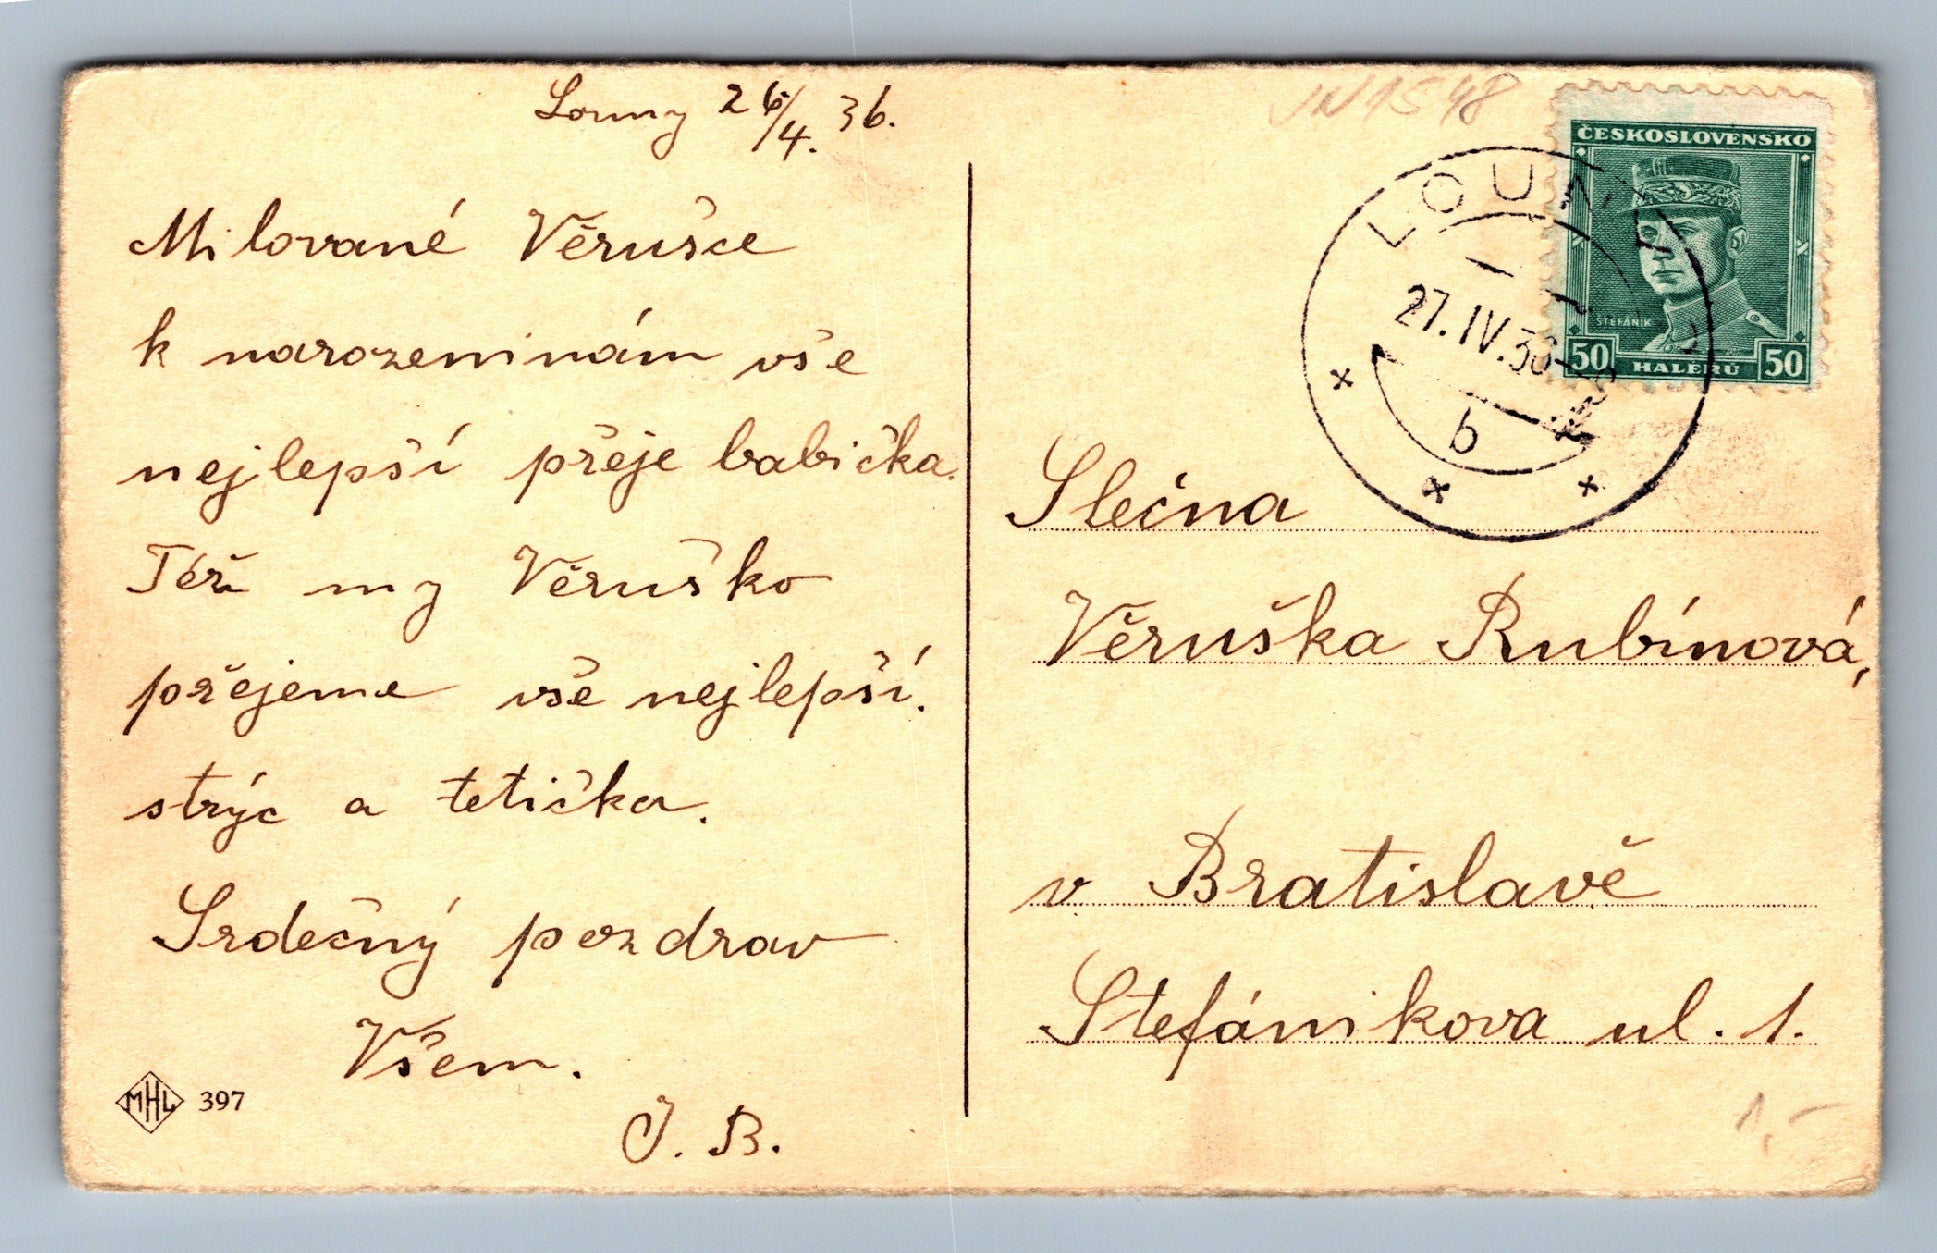 Louny 26/4. 36.
Milované Věrušce
k narozeninám vše
nejlepší přeje babička.
Též my Věruško
přejeme vše nejlepší.
strýc a tetička.
Srdečný pozdrav
Všem.
J. B.
MHL 397
ČESKOSLOVENSKO
ŠTEFÁNIK
50 HALÉŘŮ 50
LOUNY
27.IV.36
b
Slečna
Věruška Rubínová,
v Bratislavě
Stefánikova ul. 1.
1,-